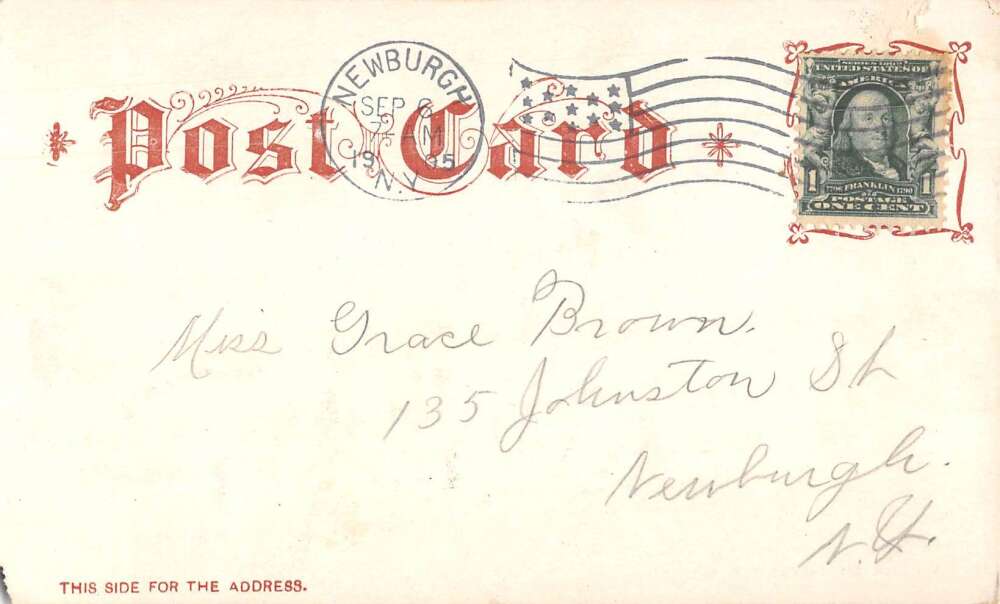 Post Card
NEWBURGH
SEP 6
M
19 05
N.Y.
SERIES 1902
UNITED STATES OF
AMERICA
1 1706 FRANKLIN 1790 1
POSTAGE
ONE CENT
Miss Grace Brown.
135 Johnston St
Newburgh.
N.Y.
THIS SIDE FOR THE ADDRESS.